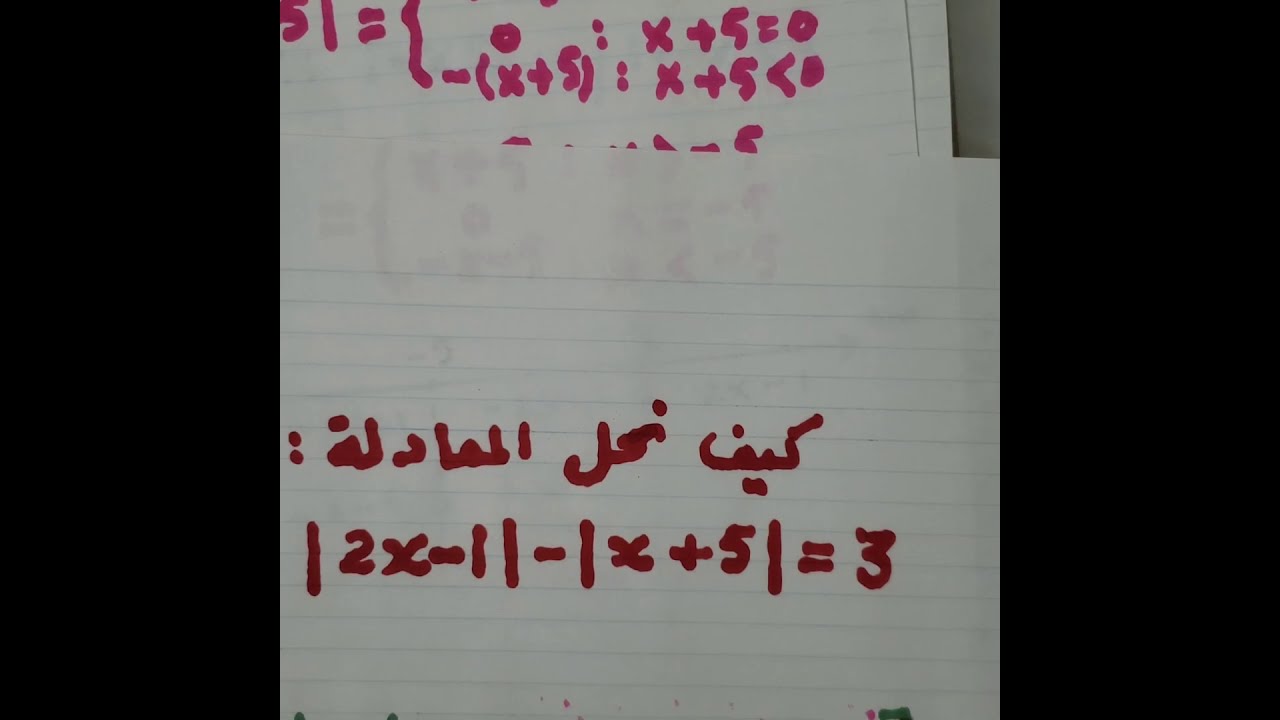 5| = { 0 : x+5=0
-(x+5) : x+5<0
كيف نحل المعادلة :
|2x-1|-|x+5|=3